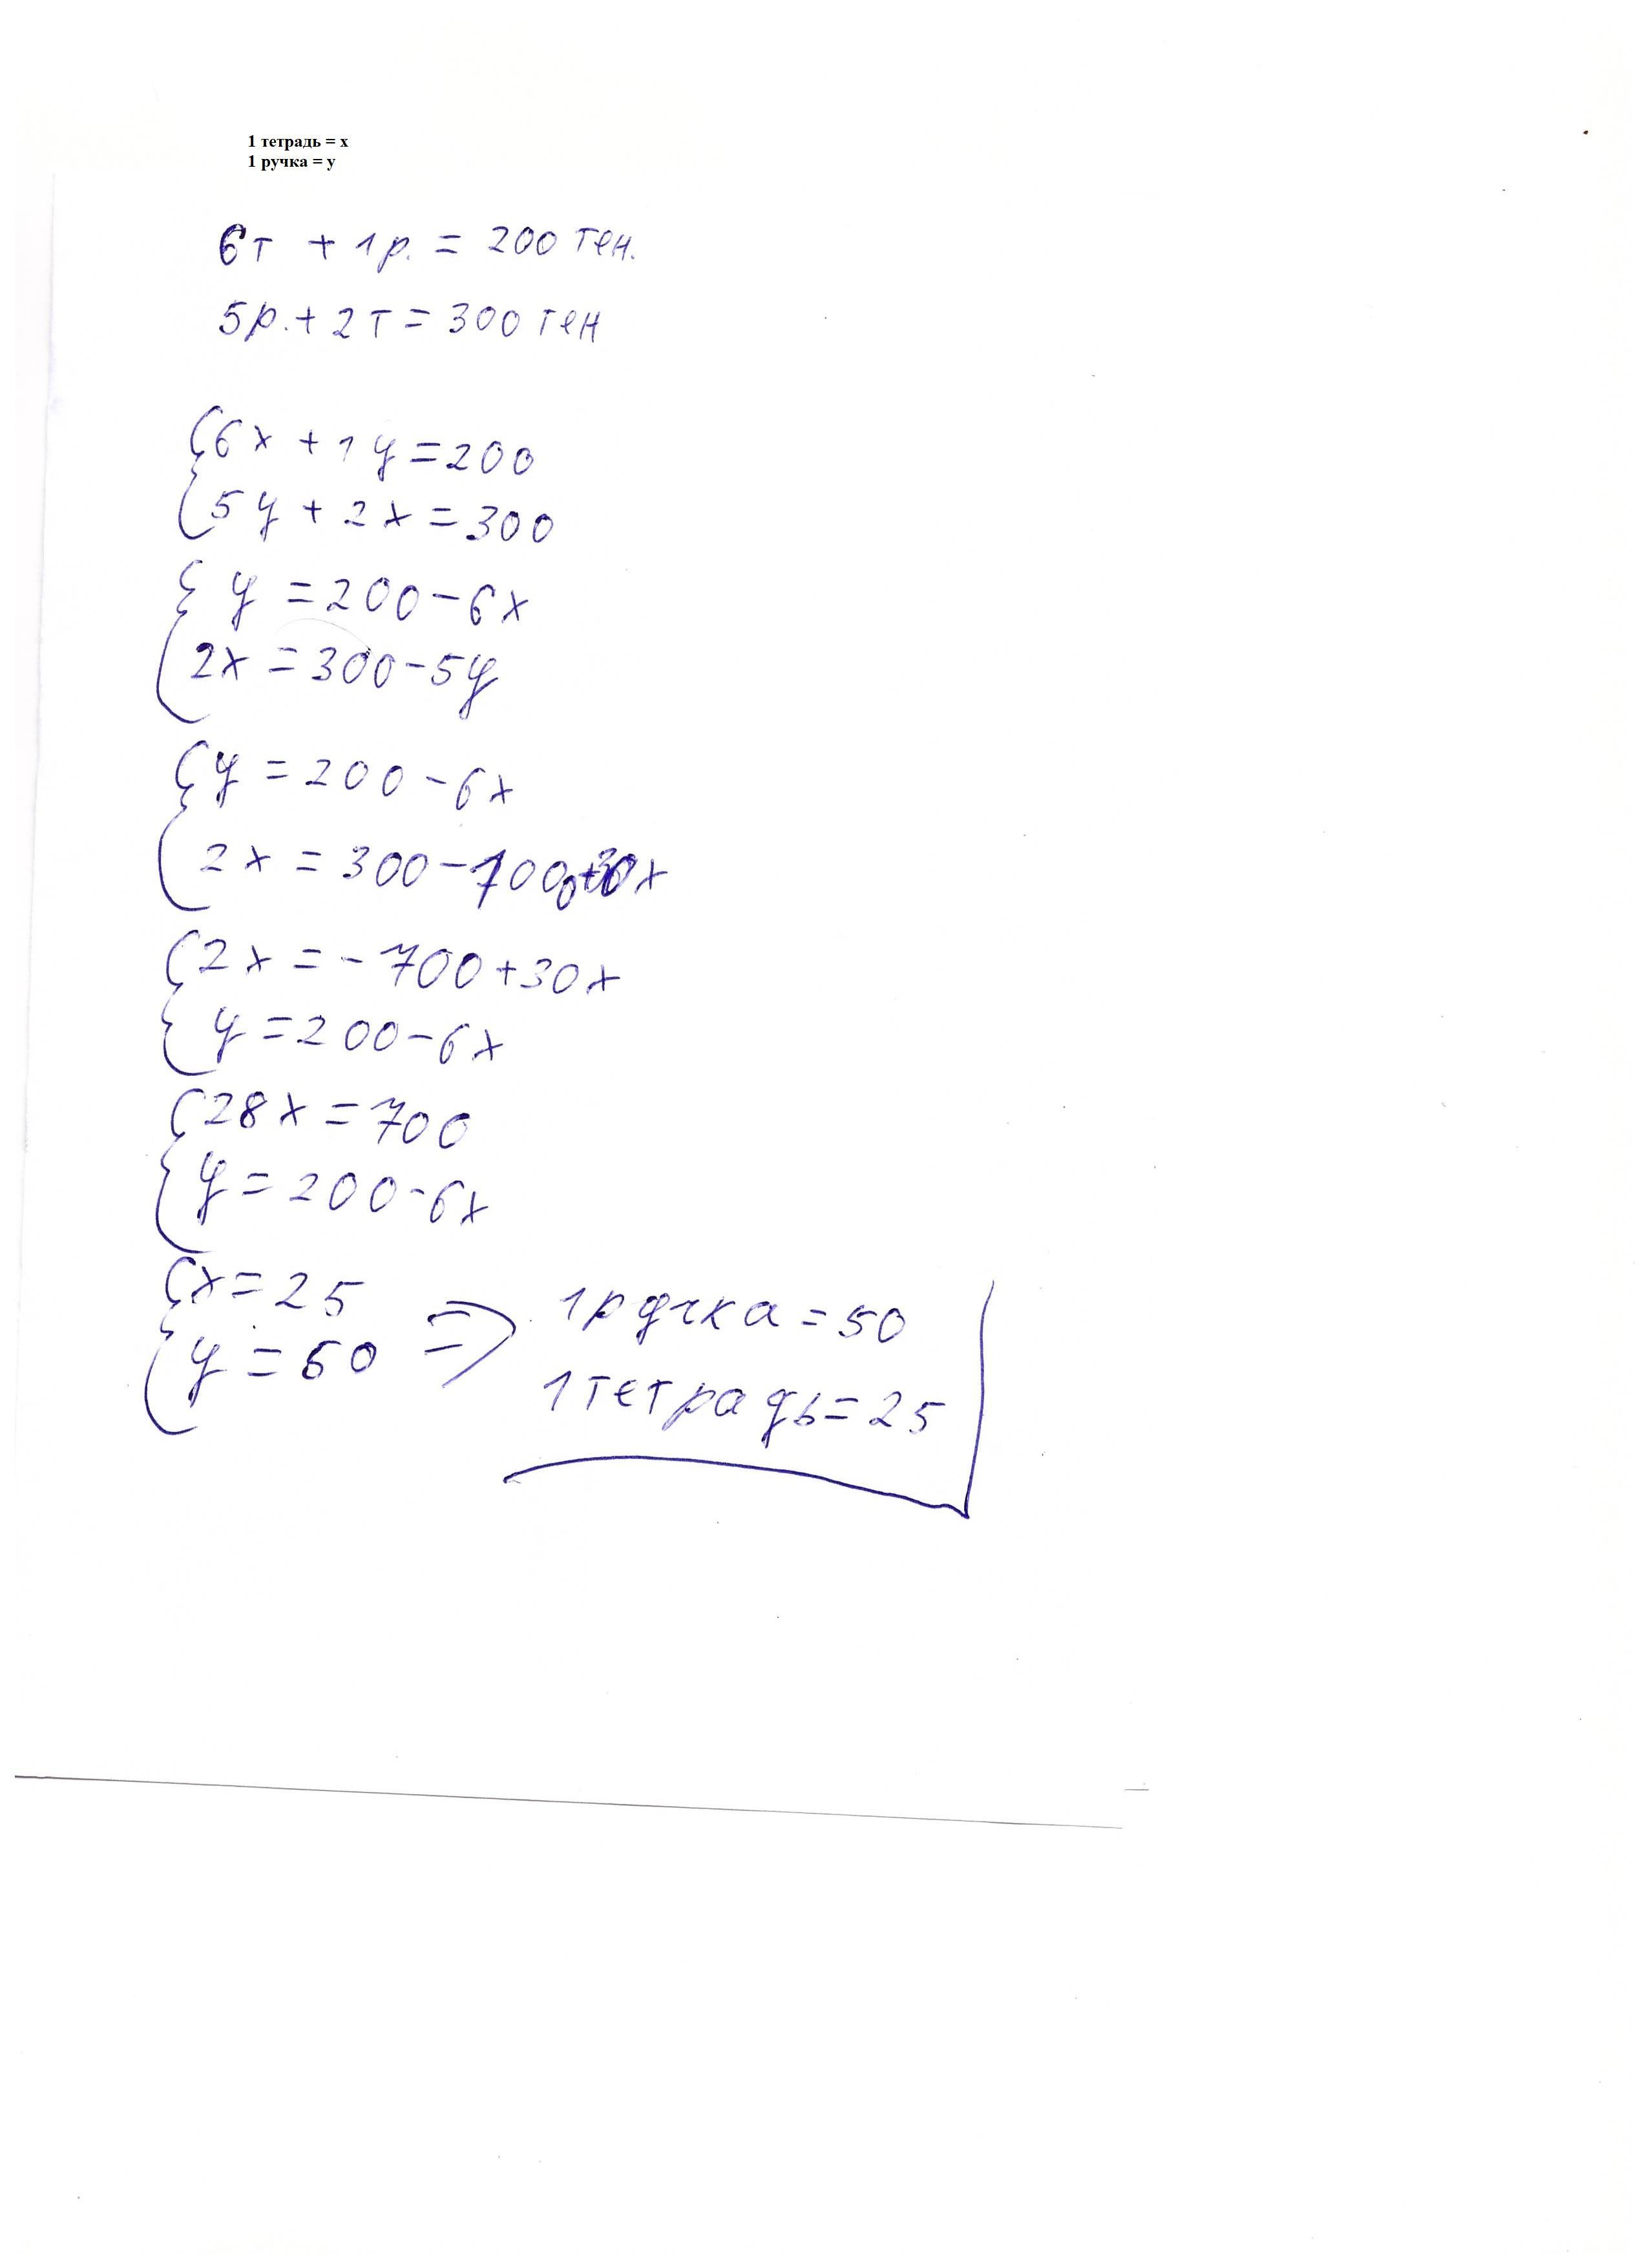 1 тетрадь = x
1 ручка = y
6т + 1р. = 200 тен.
5р. + 2т = 300 тен
{6x + 1y = 200
{5y + 2x = 300
{y = 200 - 6x
{2x = 300 - 5y
{y = 200 - 6x
{2x = 300 - 1000 + 30x
{2x = - 700 + 30x
{y = 200 - 6x
{28x = 700
{y = 200 - 6x
{x = 25
{y = 50 ⇒
1 ручка = 50
1 тетрадь = 25